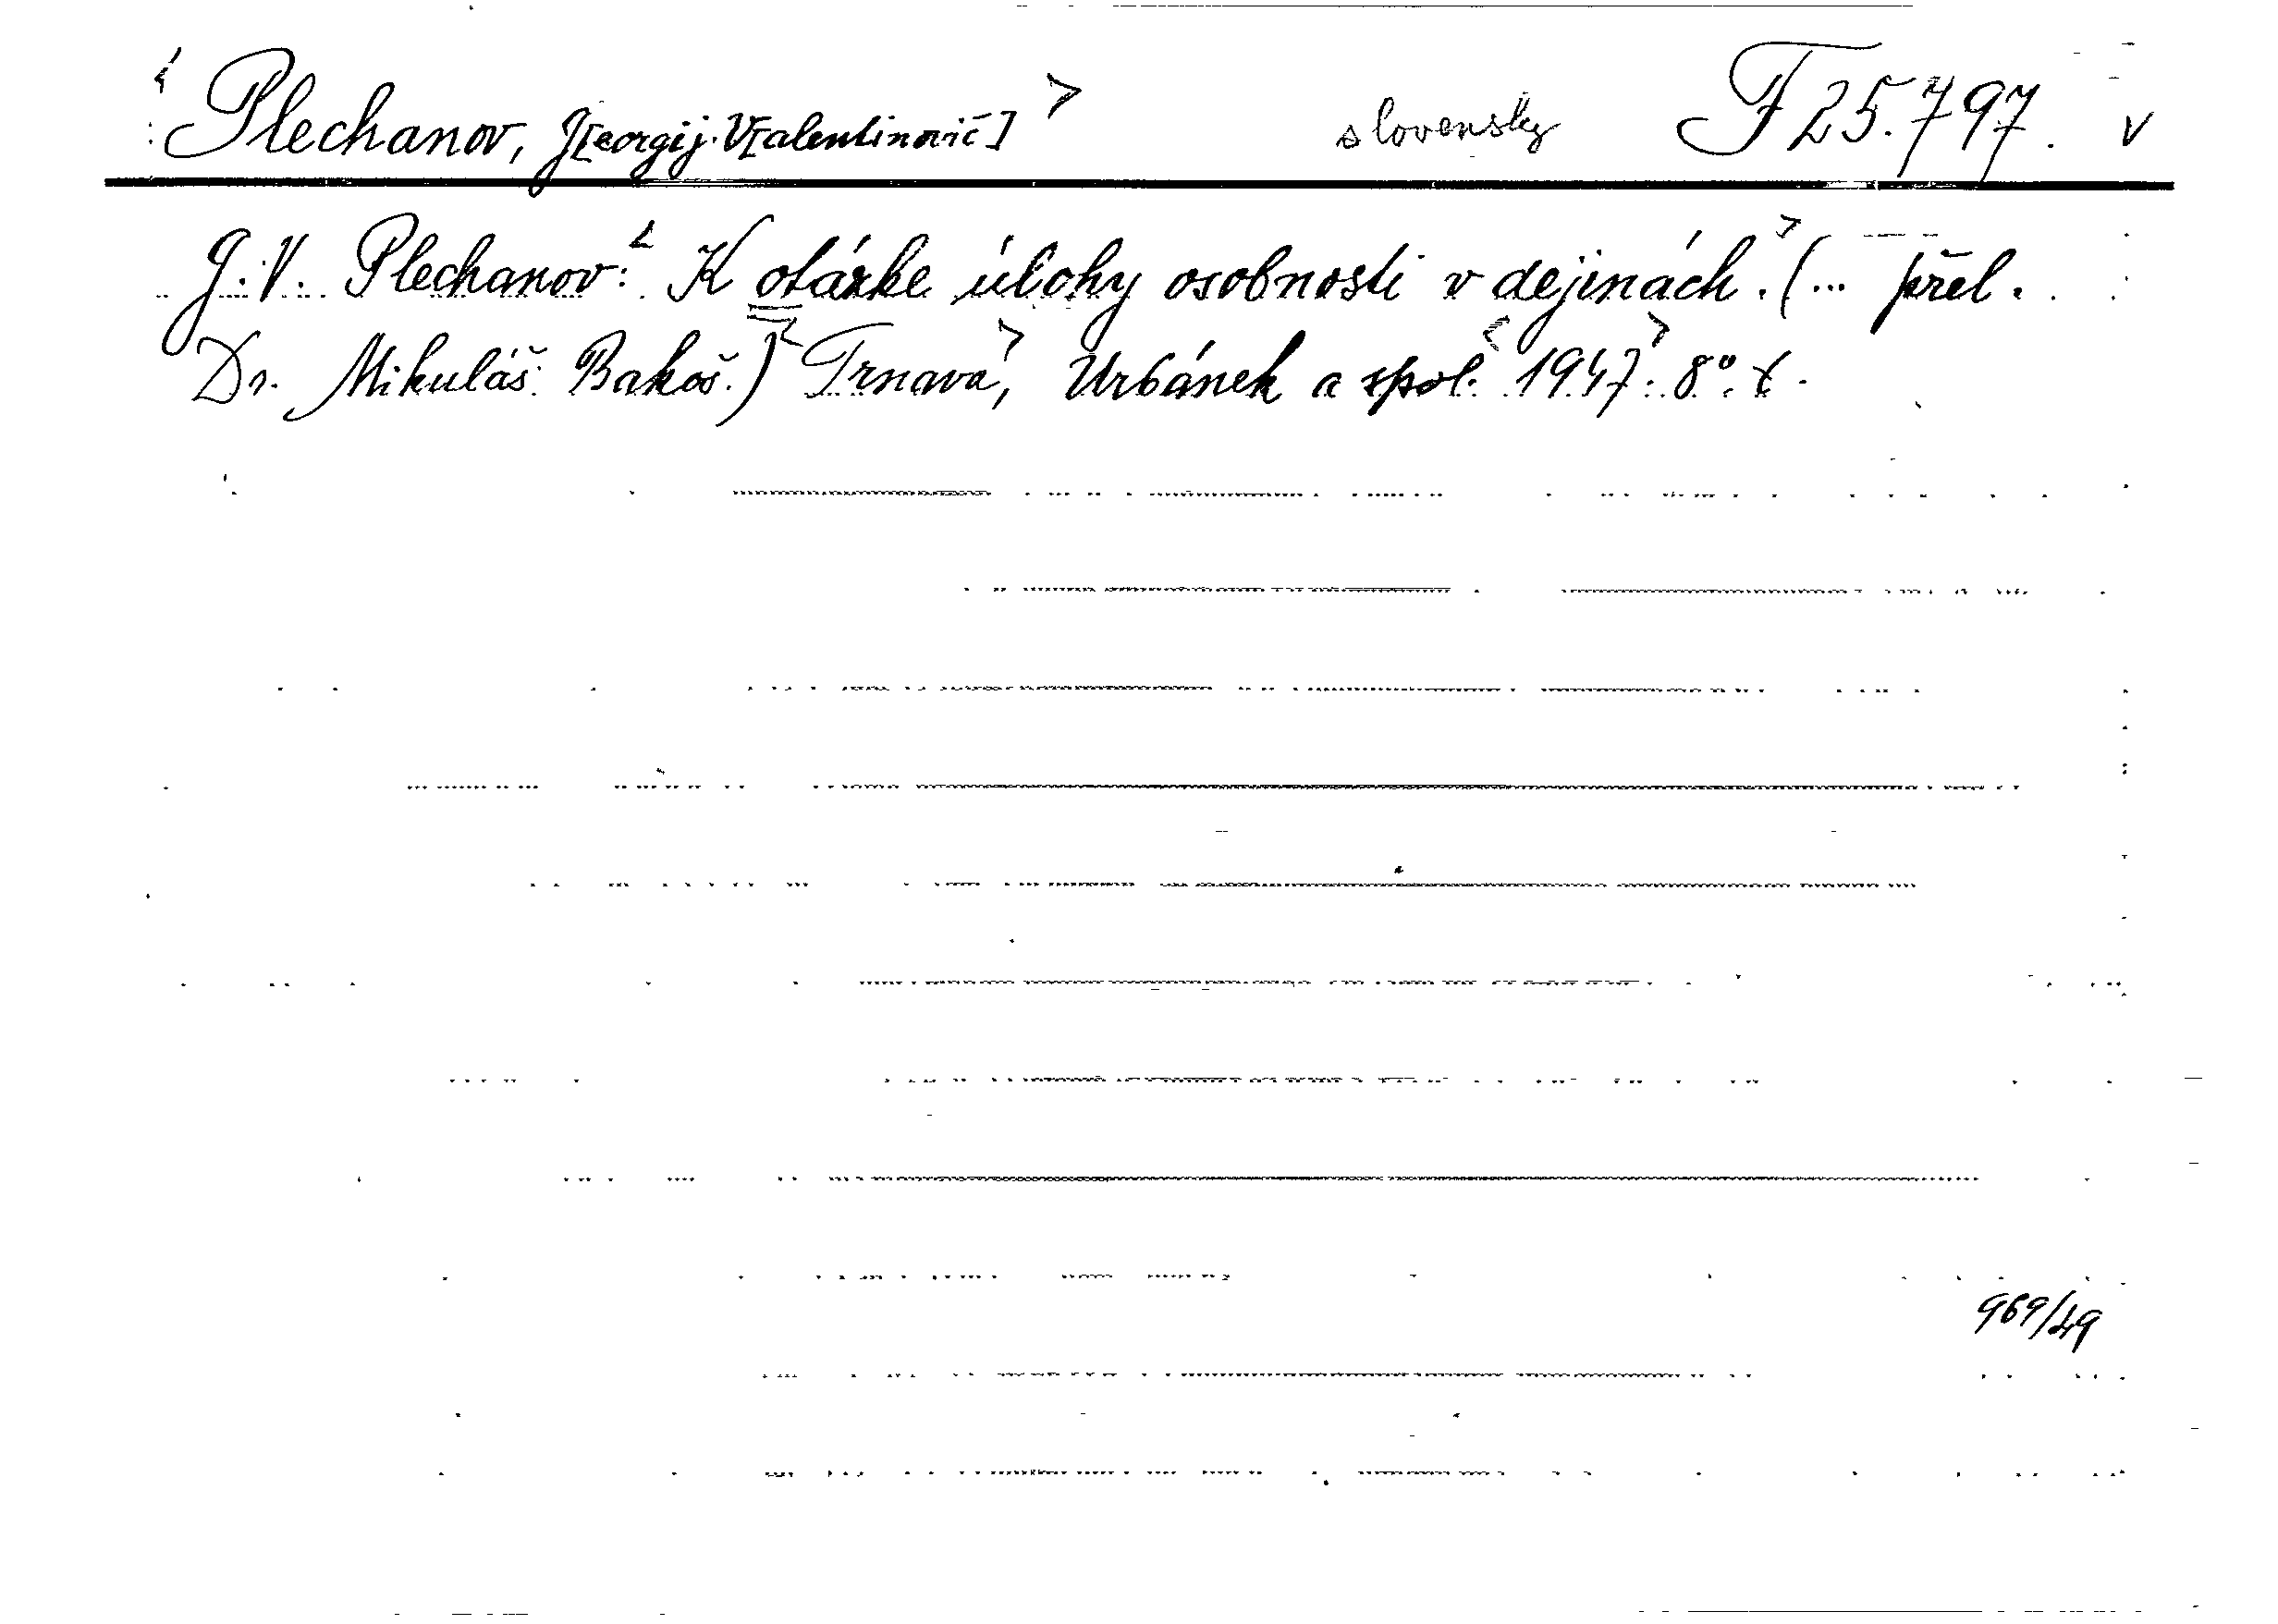 <Plechanov, G[eorgij V[alentinovič]> slovensky F 25.797. v
G. V. Plechanov: <K otázke úlohy osobnosti v dejinách.> (... přel.
Dr. Mikuláš Bakoš.) <Trnava>, Urbánek a spol. <1947>. 8°.
969/49